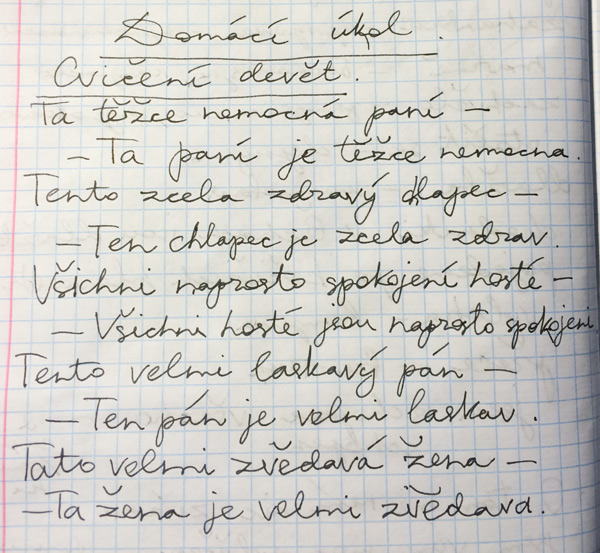 Domácí úkol.
Cvičení devět.
Ta těžce nemocná paní –
– Ta paní je těžce nemocna.
Tento zcela zdravý chlapec –
– Ten chlapec je zcela zdrav.
Všichni naprosto spokojení hosté –
– Všichni hosté jsou naprosto spokojeni
Tento velmi laskavý pán –
– Ten pán je velmi laskav.
Tato velmi zvědavá žena –
– Ta žena je velmi zvědava.